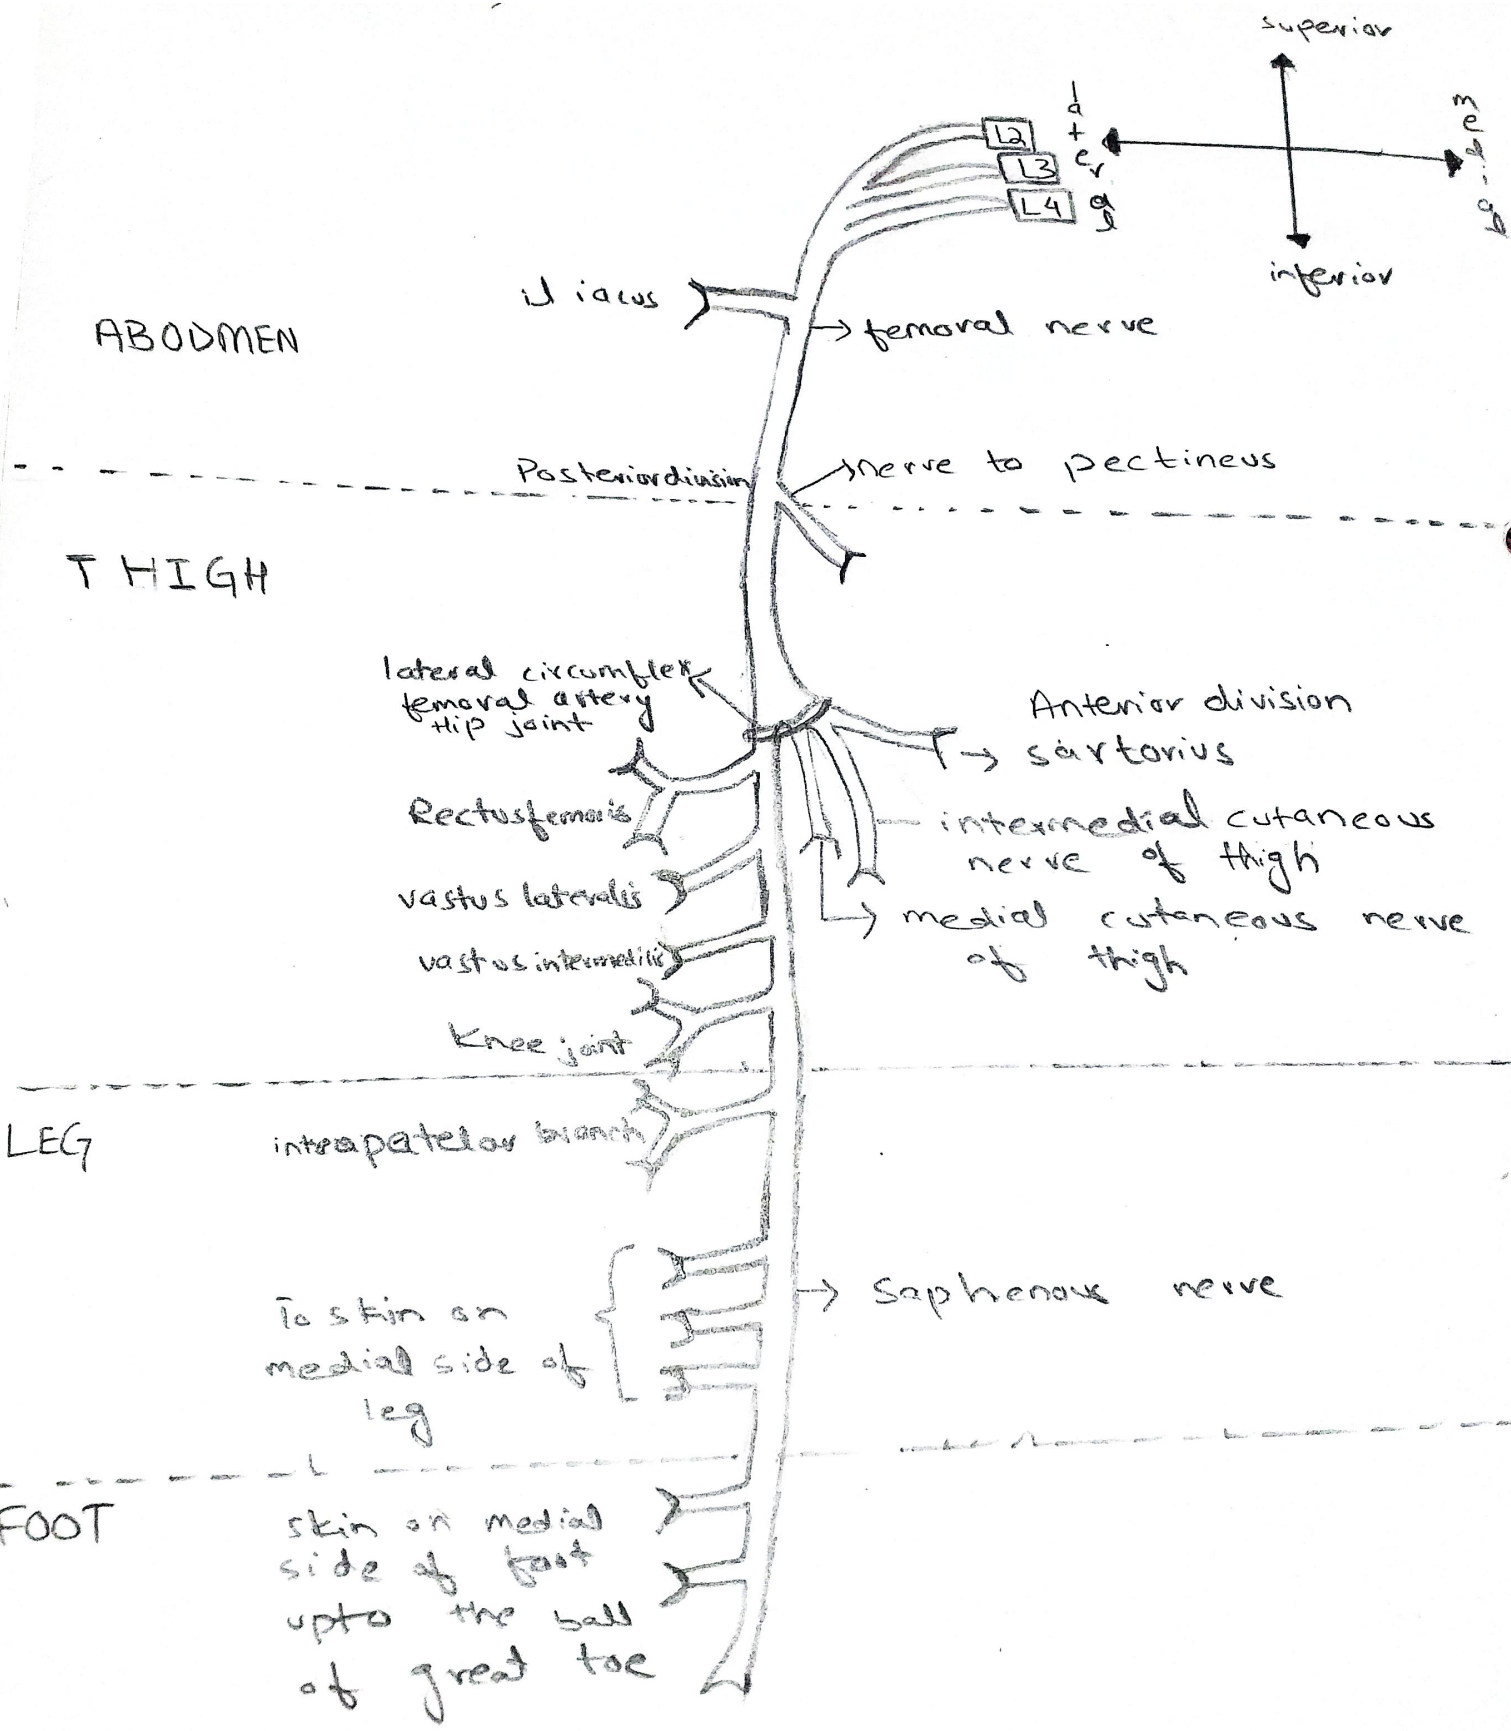 superior
lateral
medial
L2
L3
L4
inferior
iliacus
femoral nerve
ABODMEN
Posterior division
nerve to pectineus
THIGH
lateral circumflex
femoral artery
Hip joint
Anterior division
sartorius
Rectus femoris
intermedial cutaneous
nerve of thigh
vastus lateralis
medial cutaneous nerve
of thigh
Knee joint
LEG
branch
saphenous nerve
To skin on
medial side of
leg
FOOT
skin on medial
side of foot
upto the ball
of great toe